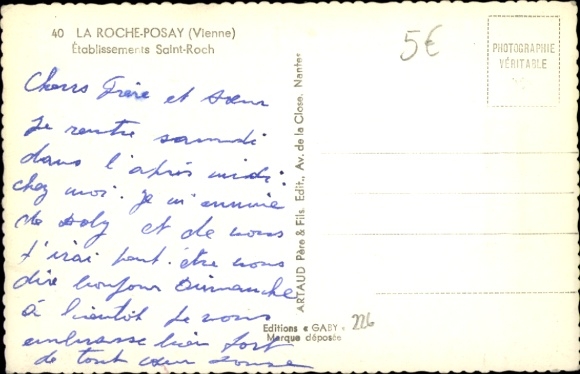 40 LA ROCHE-POSAY (Vienne)
Établissements Saint-Roch
5€
PHOTOGRAPHIE
VÉRITABLE
Chers Frère et sœur
Je rentre samedi
dans l'après midi.
chez moi. Je m'ennuie
de Loly et de vous
J'irai peut-être vous
dire bonjour Dimanche
à bientôt je vous
embrasse bien fort
de tout cœur
ARTAUD Père & Fils. Edit., Av. de la Close, Nantes
Editions « GABY » 226
Marque déposée